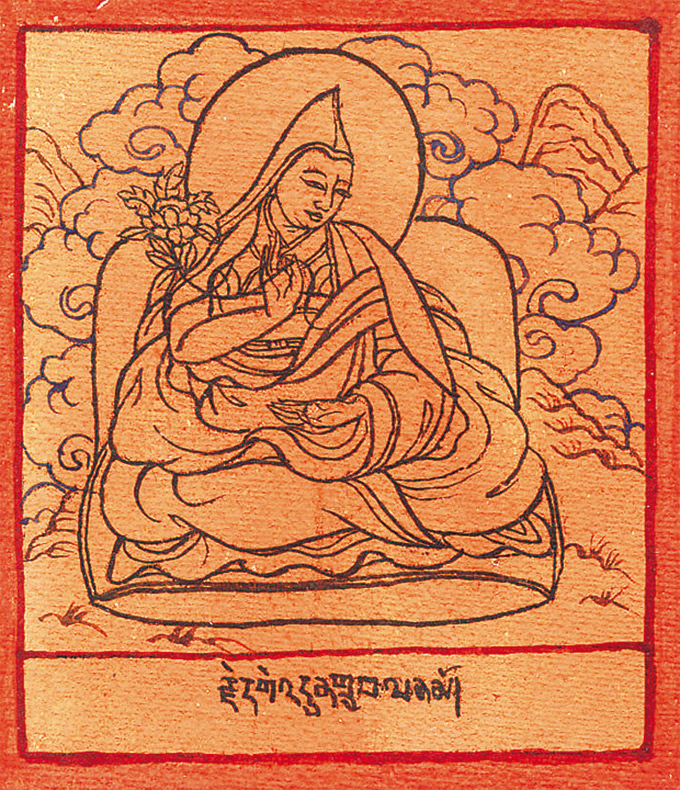 རྗེ་དགེ་འདུན་གྲུབ་ལ་ན་མོ།